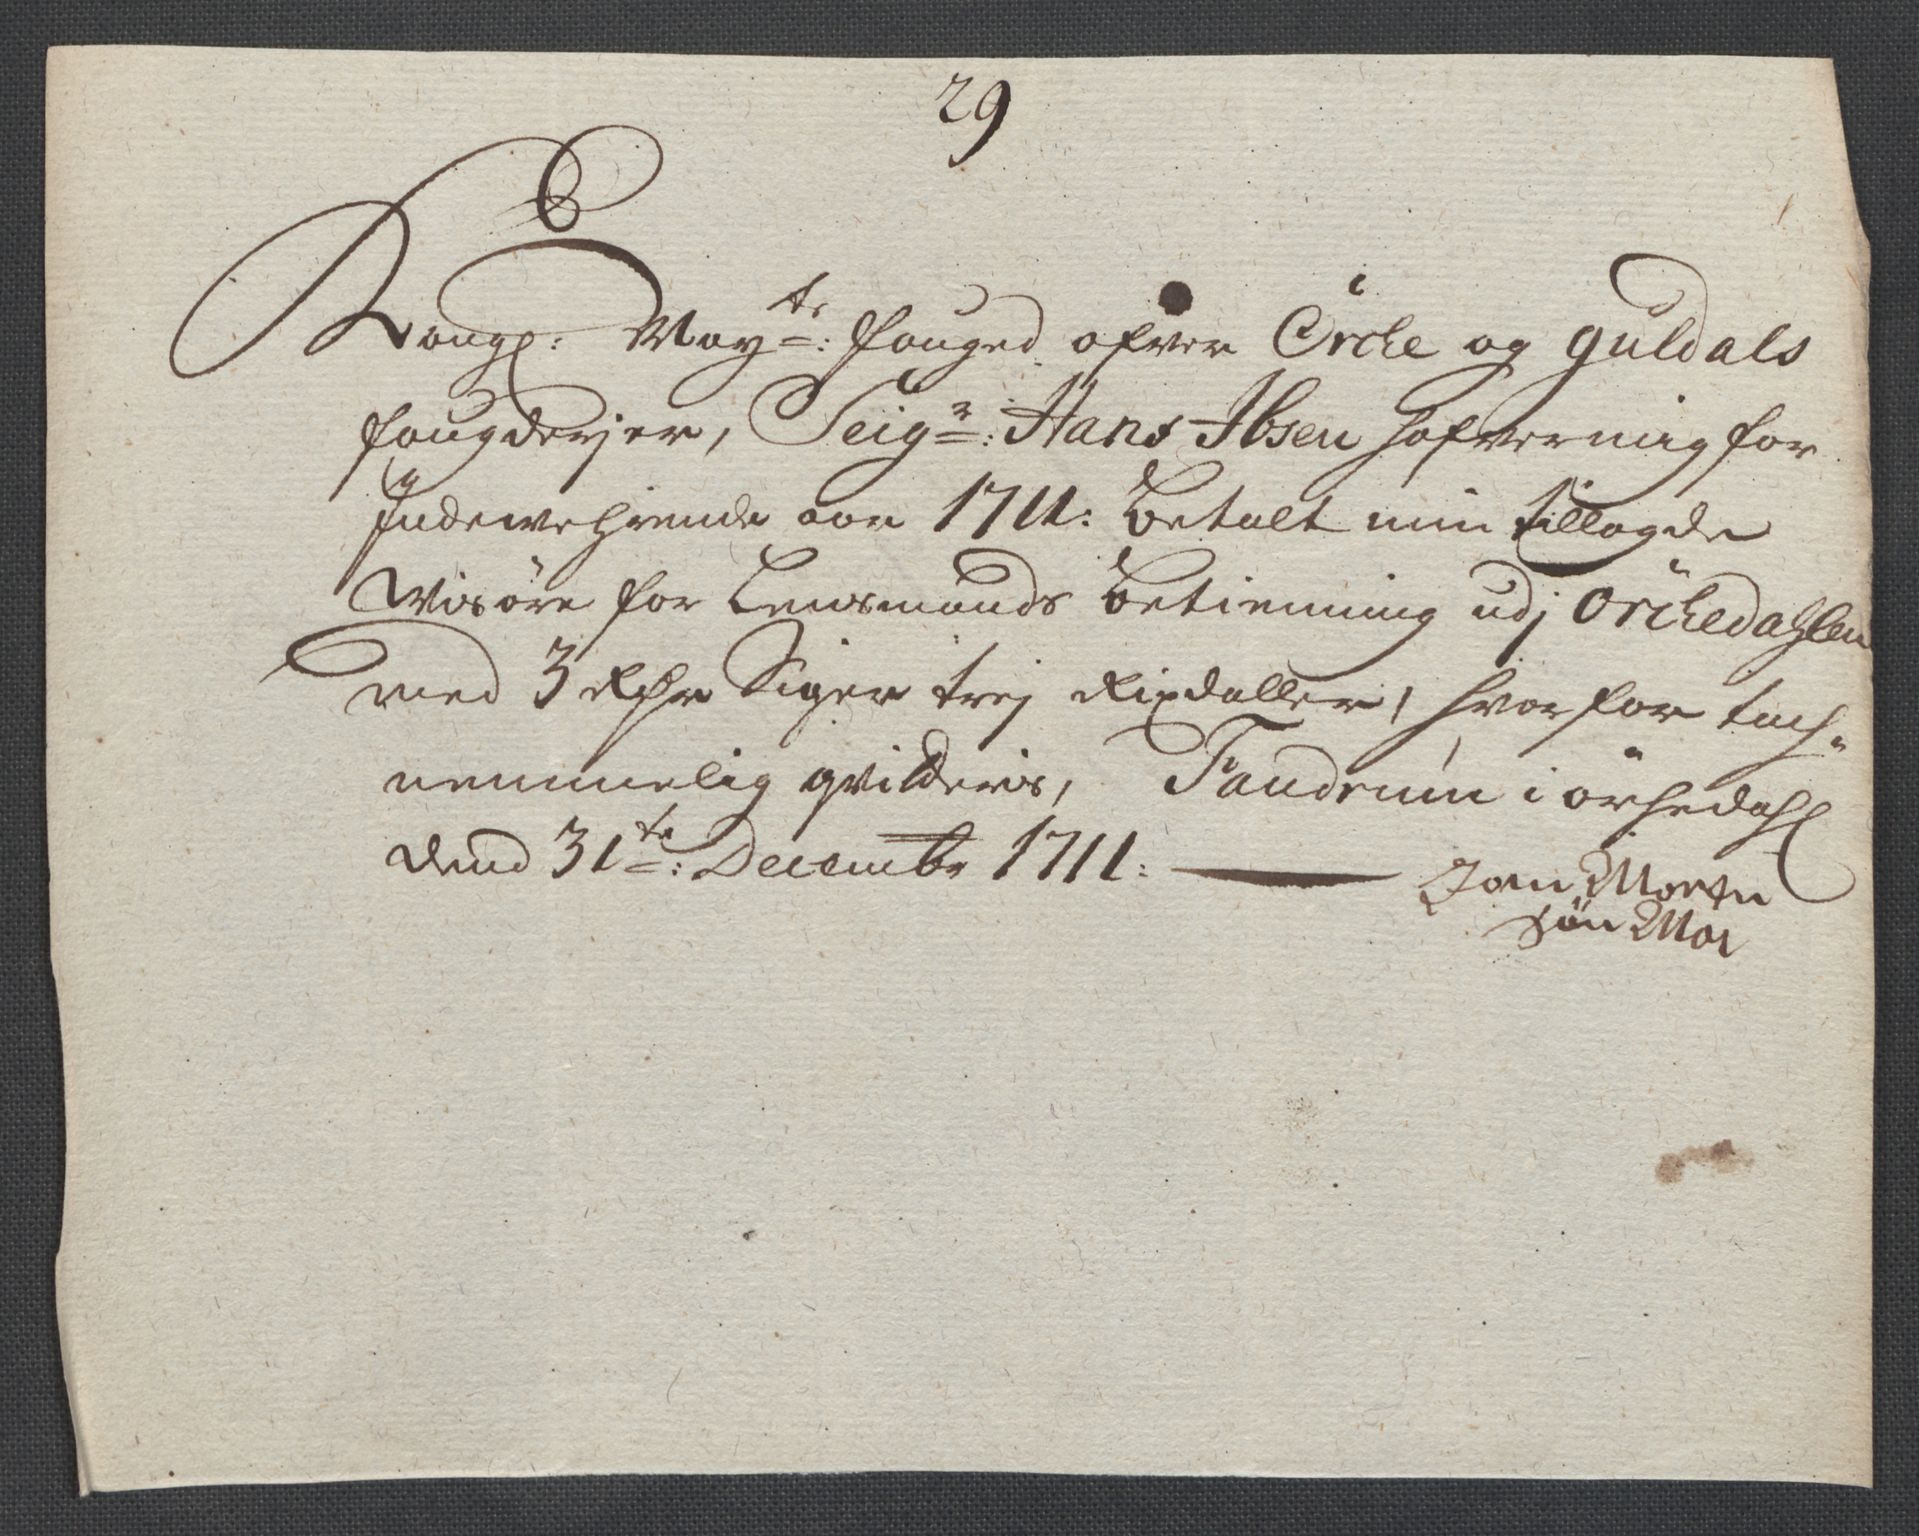 29
Kongl: May:ts: fouged ofver Örcke og Guldals
fougderjer, Seigr: Hans Ibsen hafver mig for
Indewehrende aar 1711: betalt min tillagde
Wisöre for Lensmands betienning udj Örckedahlen
med 3 Rdr Siger trej Rixdaller, hvorfor tach-
nemmelig qvitteris, Fandrem i örkedahl
dend 31te: Decembr 1711:
Joen Morten
søn Moe